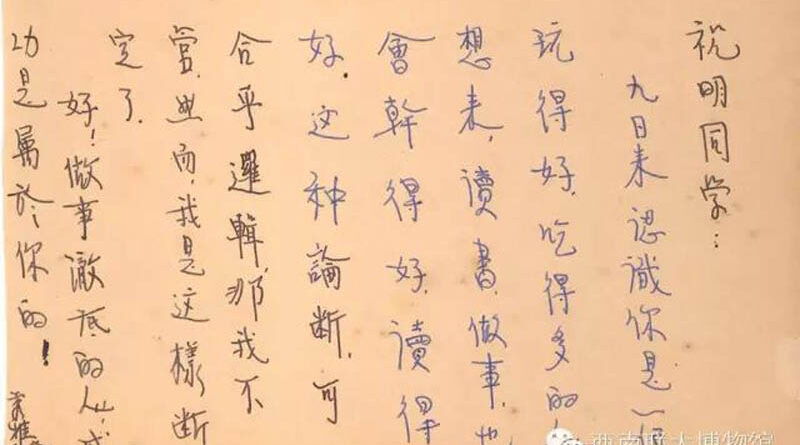 祝明同学：
九日来認識你是一
玩得好.吃得多的
想来,讀書,做事,也
會幹得好,讀得
好.这种論断,可
合乎邏輯,那我不
當.然而,我是这樣断
定了.
好!做事澈底的人,成
功是屬於你的!
西南联大博物馆